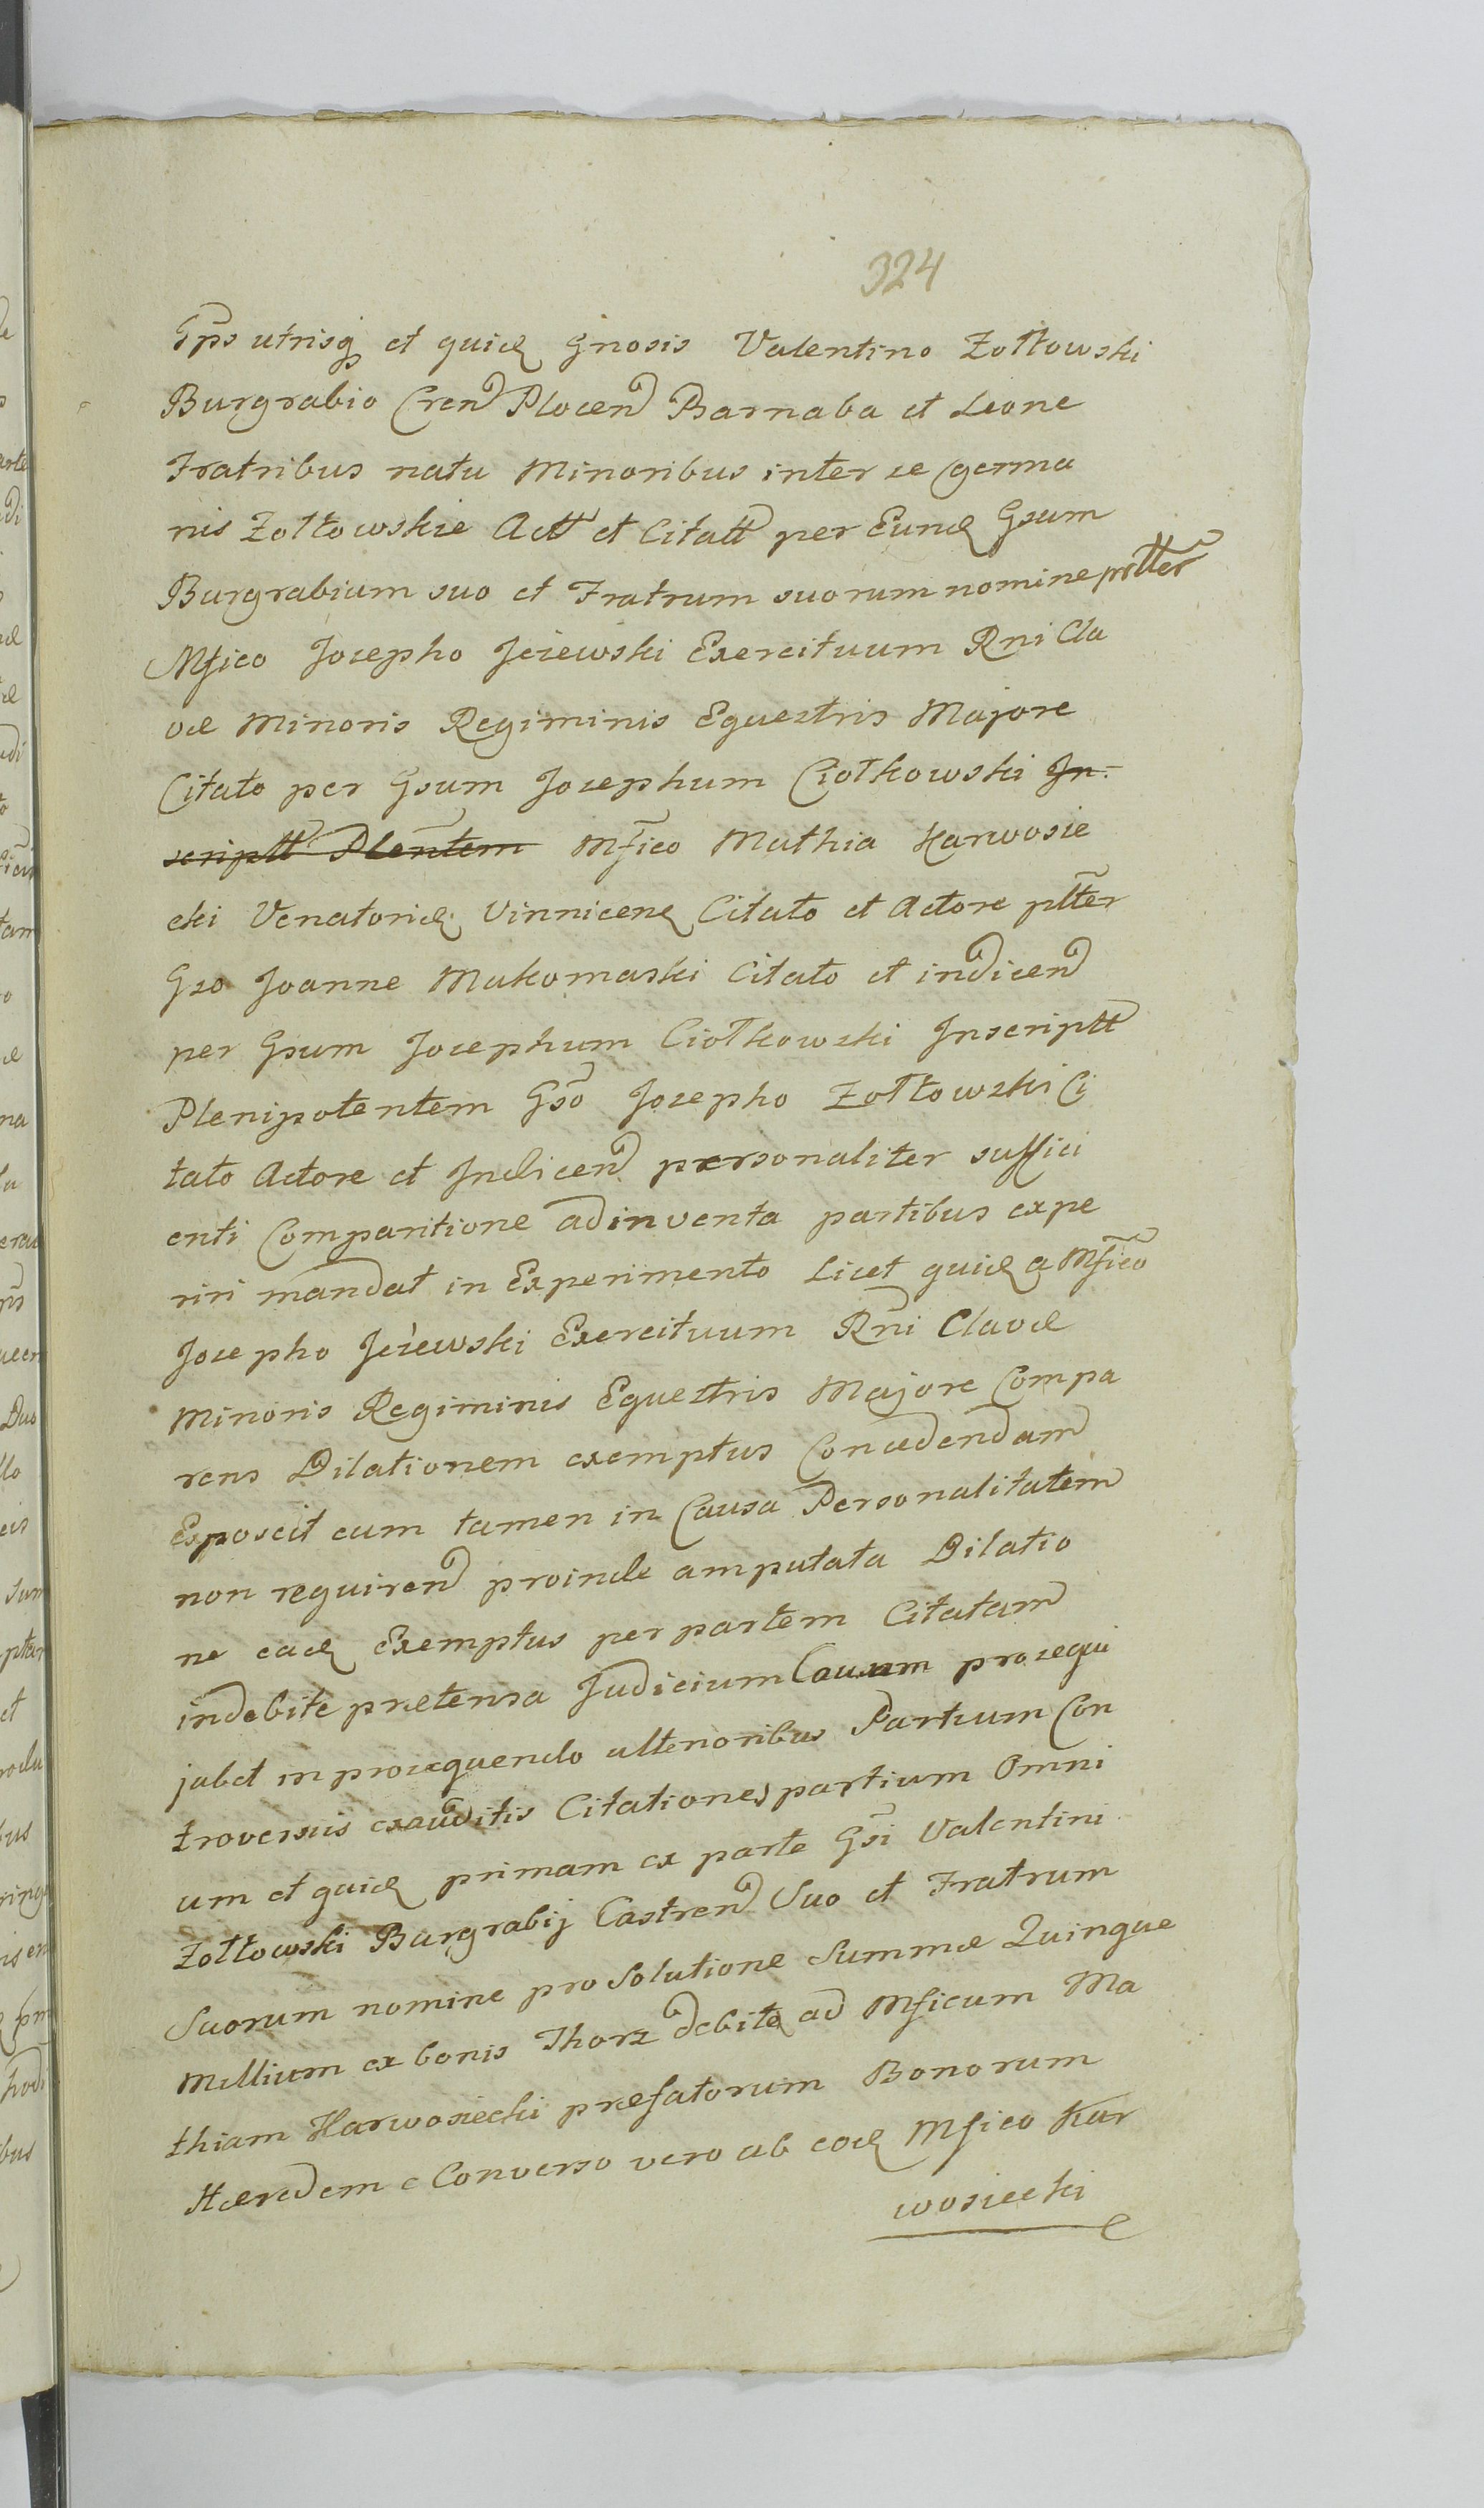 324
Gṕs utrisq et quid Gnosis Valentino Zołtowski
Burgrabio Cren Plocen Barnaba et Leone
Fratribus natu Minoribus inter se germa
nis Zołtowskie Actt et Citatt per Eund Gsum
Burgrabium suo et Fratrum suorum nomine prltter
Mfico Josepho Jeżewski Exercituum Rni Cla
væ Minoris Regiminis Equestris Majore
Citato per Gsum Josephum Ciołkowski In-
scriptt Plentem Mfico Mathia Karwosie
cki Venatorid Vinnicen Citato et Actore pltter
Gso Joanne Makomaski Citato et indicen
per Gsum Josephum Ciołkowski Inscriptt
Plenipotentem Gso Josepho Zołtowski Ci
tato Actore et Indicen personaliter suffici
enti Comparitione adinventa partibus expe
riri mandat in Experimento Licet quid a Mfico
Josepho Jeżewski Exercituum Rni Clavæ
Minoris Regiminis Equestris Majore Compa
rens Dilationem exemptus Concedendam
Exposcit cum tamen in Causa Personalitatem
non requiren proinde amputata Dilatio
ne ead Exemptus per partem Citatam
indebite prætensa Judicium Causam prosequi
jubet in prosequendo ulterioribus Partium Con
troversiis exauditis Citationes partium Omni
um et quid primam ex parte Gsi Valentini
Zołtowski Burgrabij Castren Suo et Fratrum
Suorum nomine pro Solutione Summæ Quinque
Millium ex bonis Thorz debite ad Mficum Ma
thiam Karwosiecki præfatorum Bonorum
Hæredem e Converso vero ab eod Mfico Kar
wosiecki